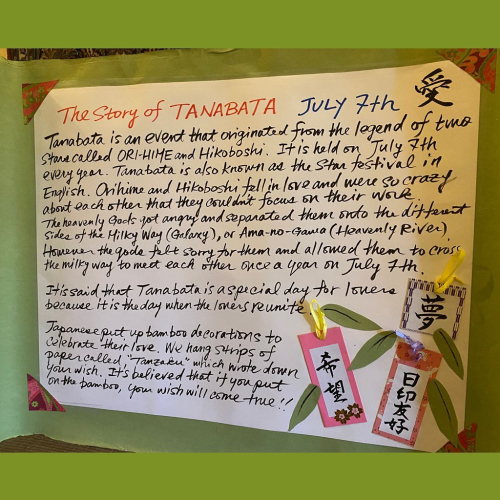 The Story of TANABATA JULY 7th
愛
Tanabata is an event that originated from the legend of two
Stars called ORI-HIME and Hikoboshi. It is held on July 7th
every year. Tanabata is also known as the Star festival in
English. Orihime and Hikoboshi fell in love and were so crazy
about each other that they couldn't focus on their work.
The heavenly Gods got angry and separated them onto the different
sides of the Milky Way (Galaxy), or Ama-no-Gawa (Heavenly River).
However the gods felt sorry for them and allowed them to cross
the milky way to meet each other once a year on July 7th.
It is said that Tanabata is a special day for lovers
because it is the day when the lovers reunite.
Japanese put up bamboo decorations to
celebrate their love. We hang strips of
paper called, "Tanzaku" which wrote down
your wish. It's believed that if you put
on the bamboo, your wish will come true!!
夢
希望
日印友好